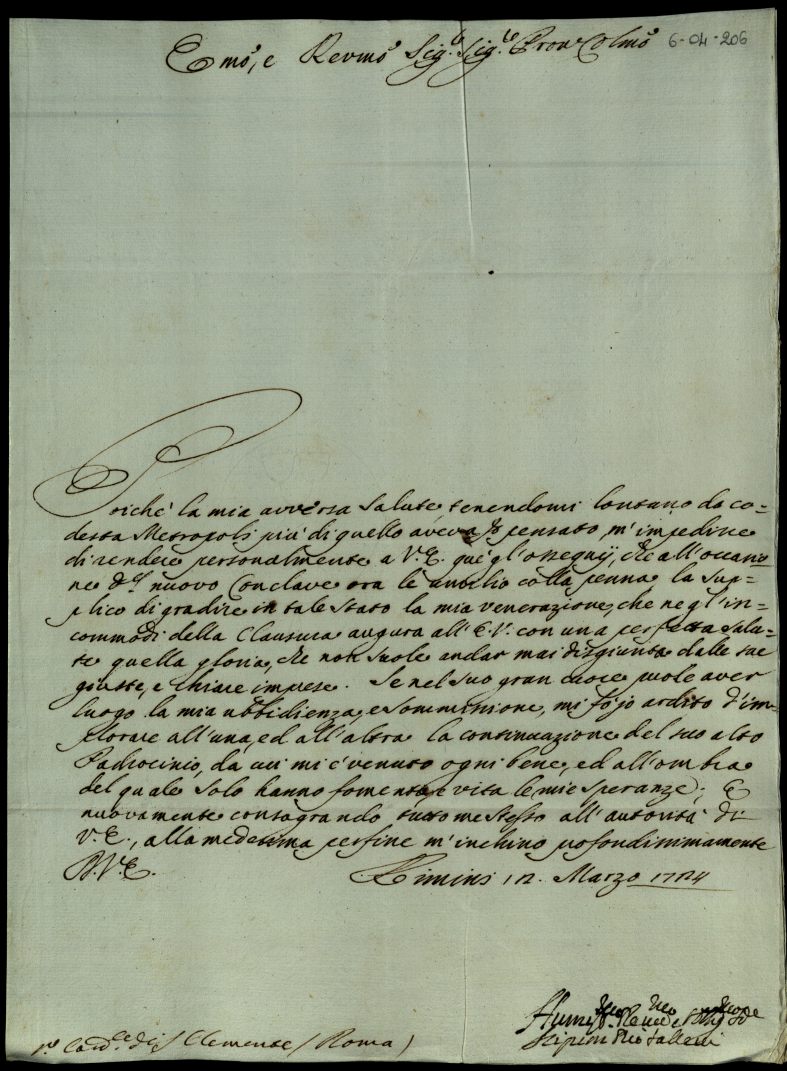 Emō, e Revmō Sig.re Sig.re Pron Colmō 6-04-206
Poiche' la mia avversa salute tenendomi lontano da co=
desta Metropoli più di quello aveva pensato, m'impedisce
di rendere personalmente a V.E. que' gl'ossequij, che all'occasio=
ne del nuovo Conclave ora le umilio colla penna, la sup=
plico di gradire in tale stato la mia venerazione, che negl'in=
commodi della Clausura augura all'E.V. con una perfetta salu=
te quella gloria, che non suole andar mai disgiunta dalle sue
giuste, e chiare imprese. Se nel suo gran cuore puole aver
luogo la mia ubbidienza, e sommissione, mi fo jo ardito d'im=
plorare all'una, ed all'altra la continuazione del suo alto
Padrocinio, da cui mi è venuto ogni bene, ed all'ombra
del quale solo hanno fomento, e vita le mie speranze; E
nuovamente consagrando tutto me stesso all'autorità di
V.E., alla medesima perfine m'inchino profondissimamente
D.V.E. Rimini 12. Marzo 1724
Humil.mo
Sr Card.le di S Clemente / Roma)